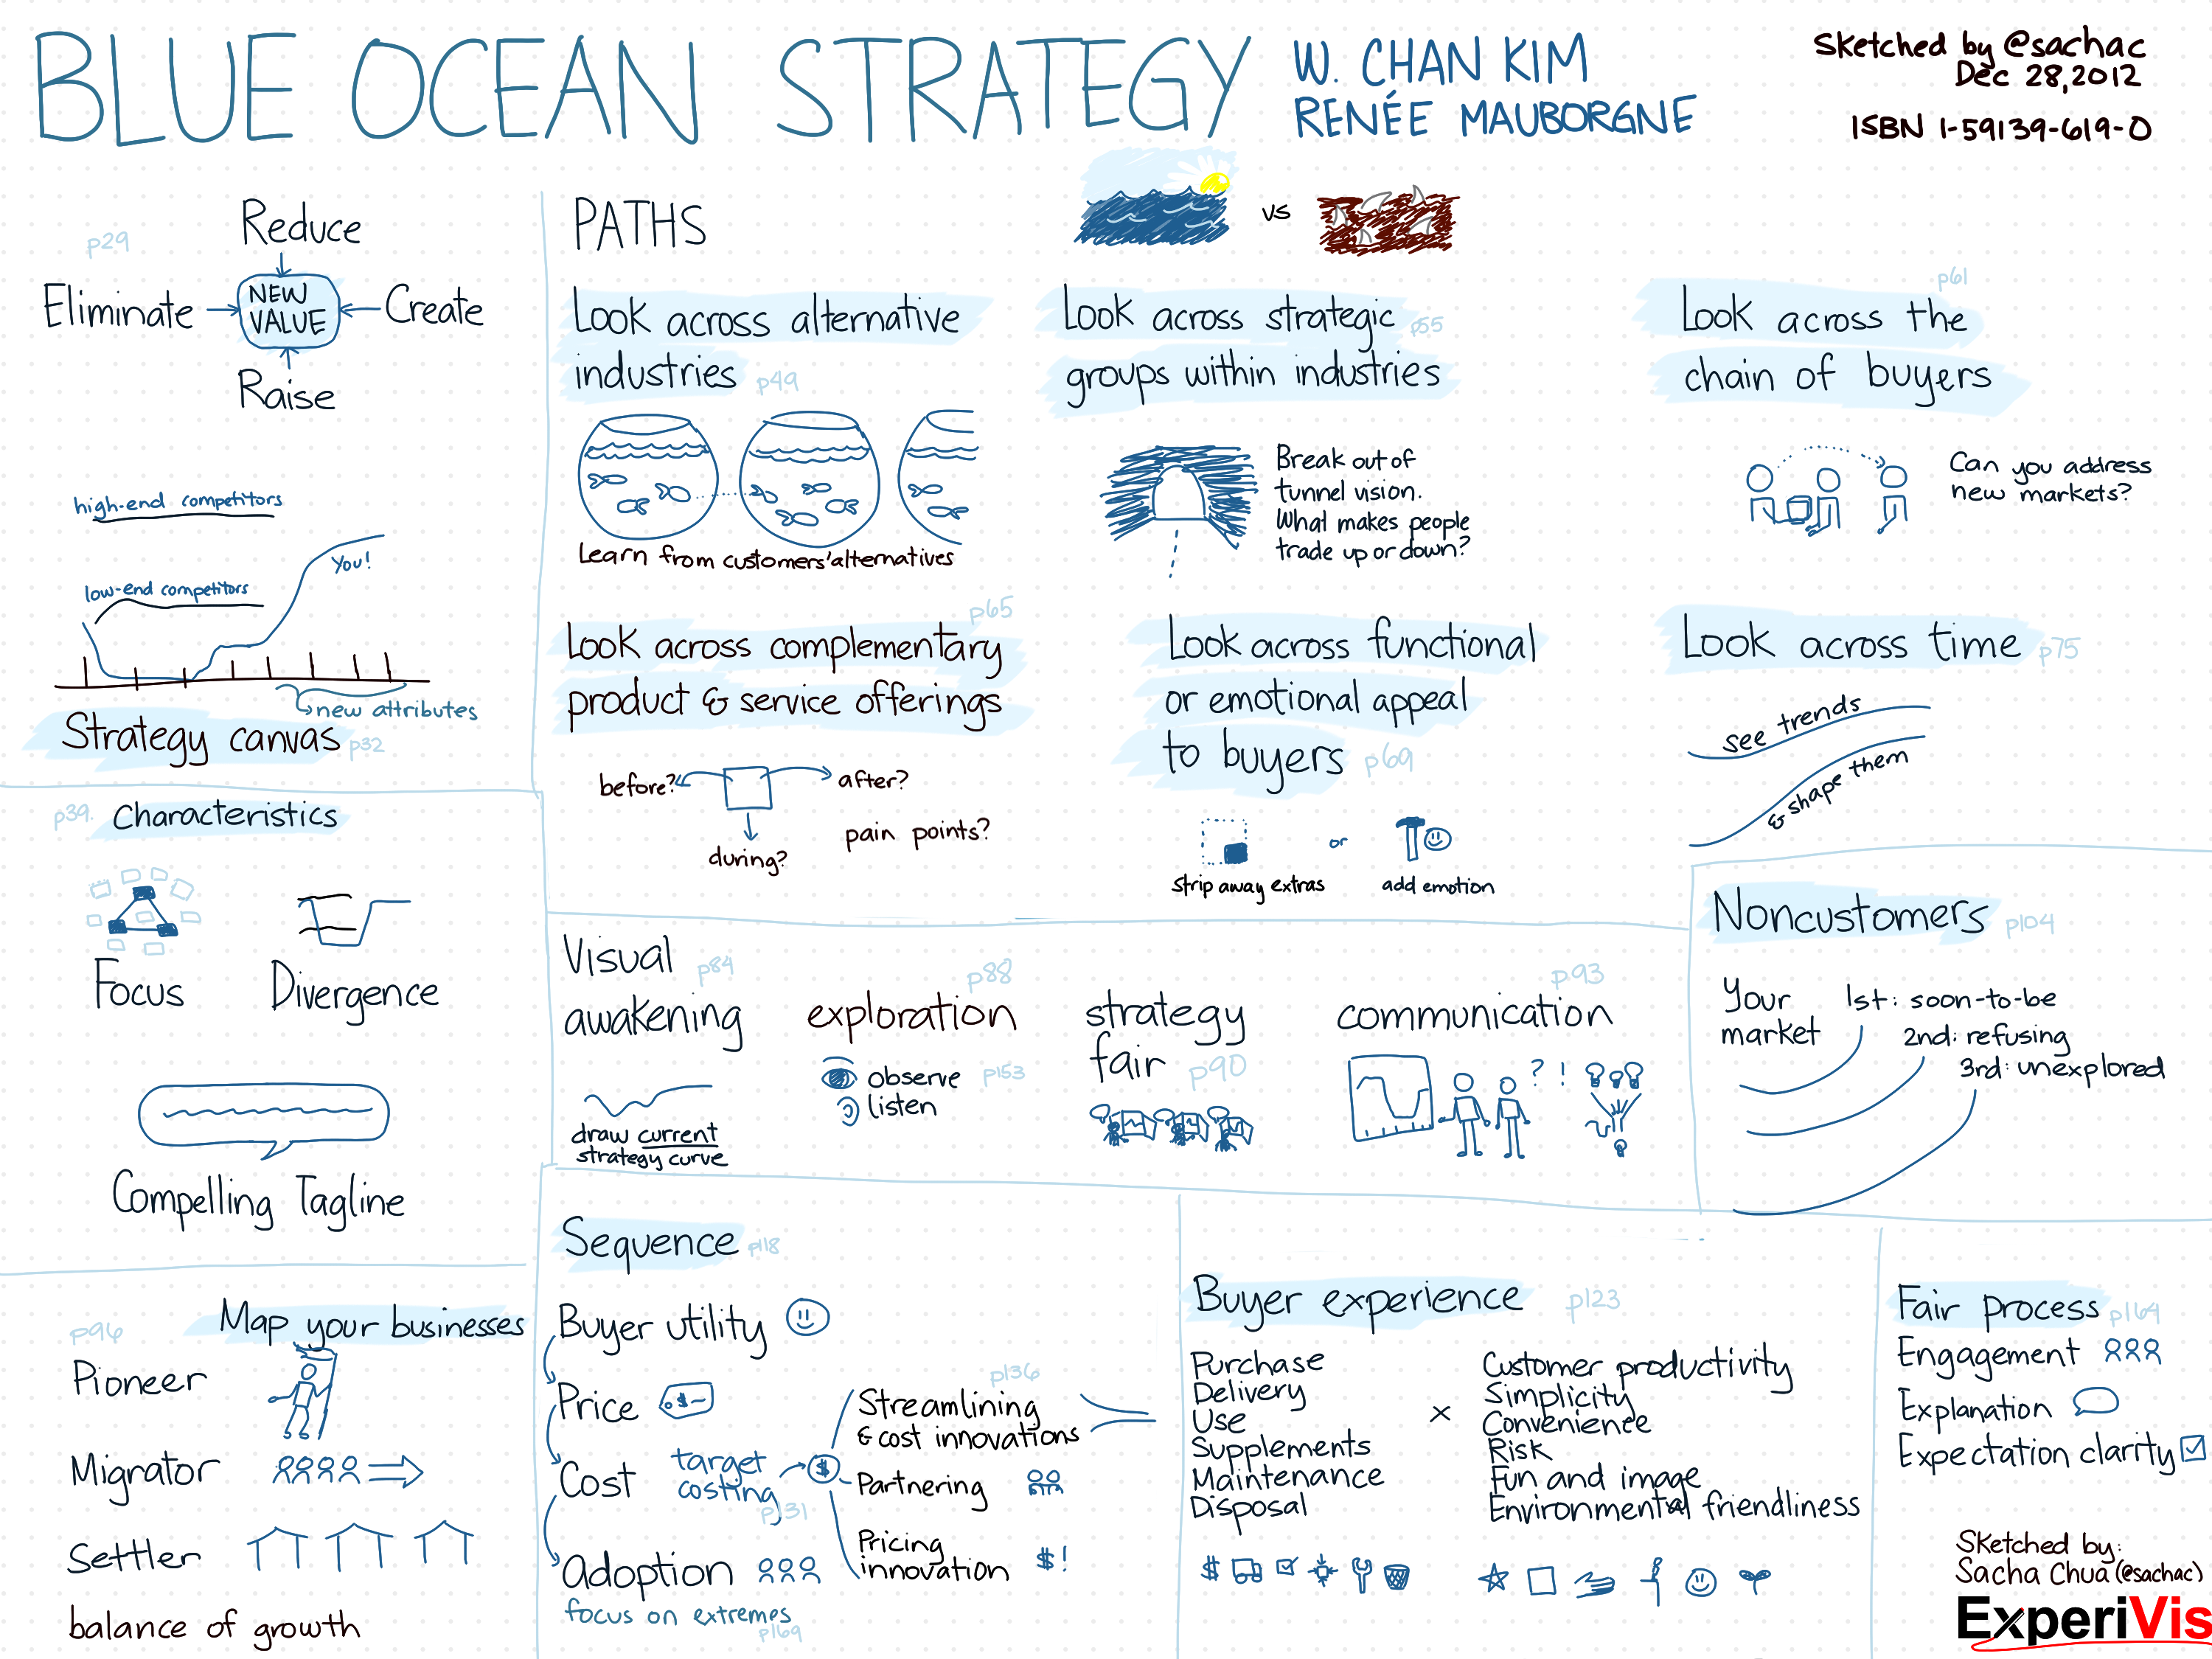 BLUE OCEAN STRATEGY
W. CHAN KIM
RENÉE MAUBORGNE
Sketched by @sachac
Dec 28, 2012
ISBN 1-59139-619-0
p29
Reduce
Eliminate
NEW
VALUE
Create
Raise
high-end competitors
You!
low-end competitors
new attributes
Strategy canvas p32
p39.
Characteristics
Focus
Divergence
Compelling Tagline
p96
Map your businesses
Pioneer
Migrator
Settler
balance of growth
PATHS
vs
Look across alternative
industries p49
Learn from customers' alternatives
Look across strategic p55
groups within industries
Break out of
tunnel vision.
What makes people
trade up or down?
p61
Look across the
chain of buyers
Can you address
new markets?
p65
Look across complementary
product & service offerings
before?
after?
during?
pain points?
Look across functional
or emotional appeal
to buyers p69
strip away extras
or
add emotion
Look across time p75
see trends
& shape them
Visual
awakening p84
draw current
strategy curve
p88
exploration
observe p153
listen
strategy
fair p90
p93
communication
? !
Noncustomers p104
Your
market
1st: soon-to-be
2nd: refusing
3rd: unexplored
Sequence p118
Buyer utility
Price
$-
Cost
target
costing
p131
$
Adoption
focus on extremes
p169
p136
Streamlining
& cost innovations
Partnering
Pricing
innovation
$!
Buyer experience p123
Purchase
Delivery
Use
Supplements
Maintenance
Disposal
x
Customer productivity
Simplicity
Convenience
Risk
Fun and image
Environmental friendliness
$
Fair process p164
Engagement
Explanation
Expectation clarity
Sketched by:
Sacha Chua (@sachac)
ExperiVis